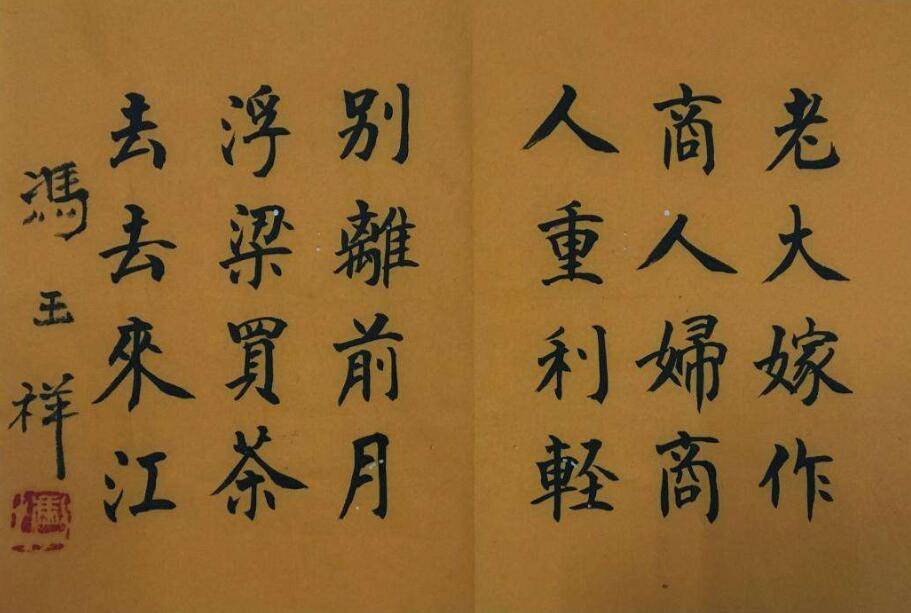 老大嫁作
商人婦商
人重利軽
别離前月
浮梁買茶
去去來江
馮玉祥